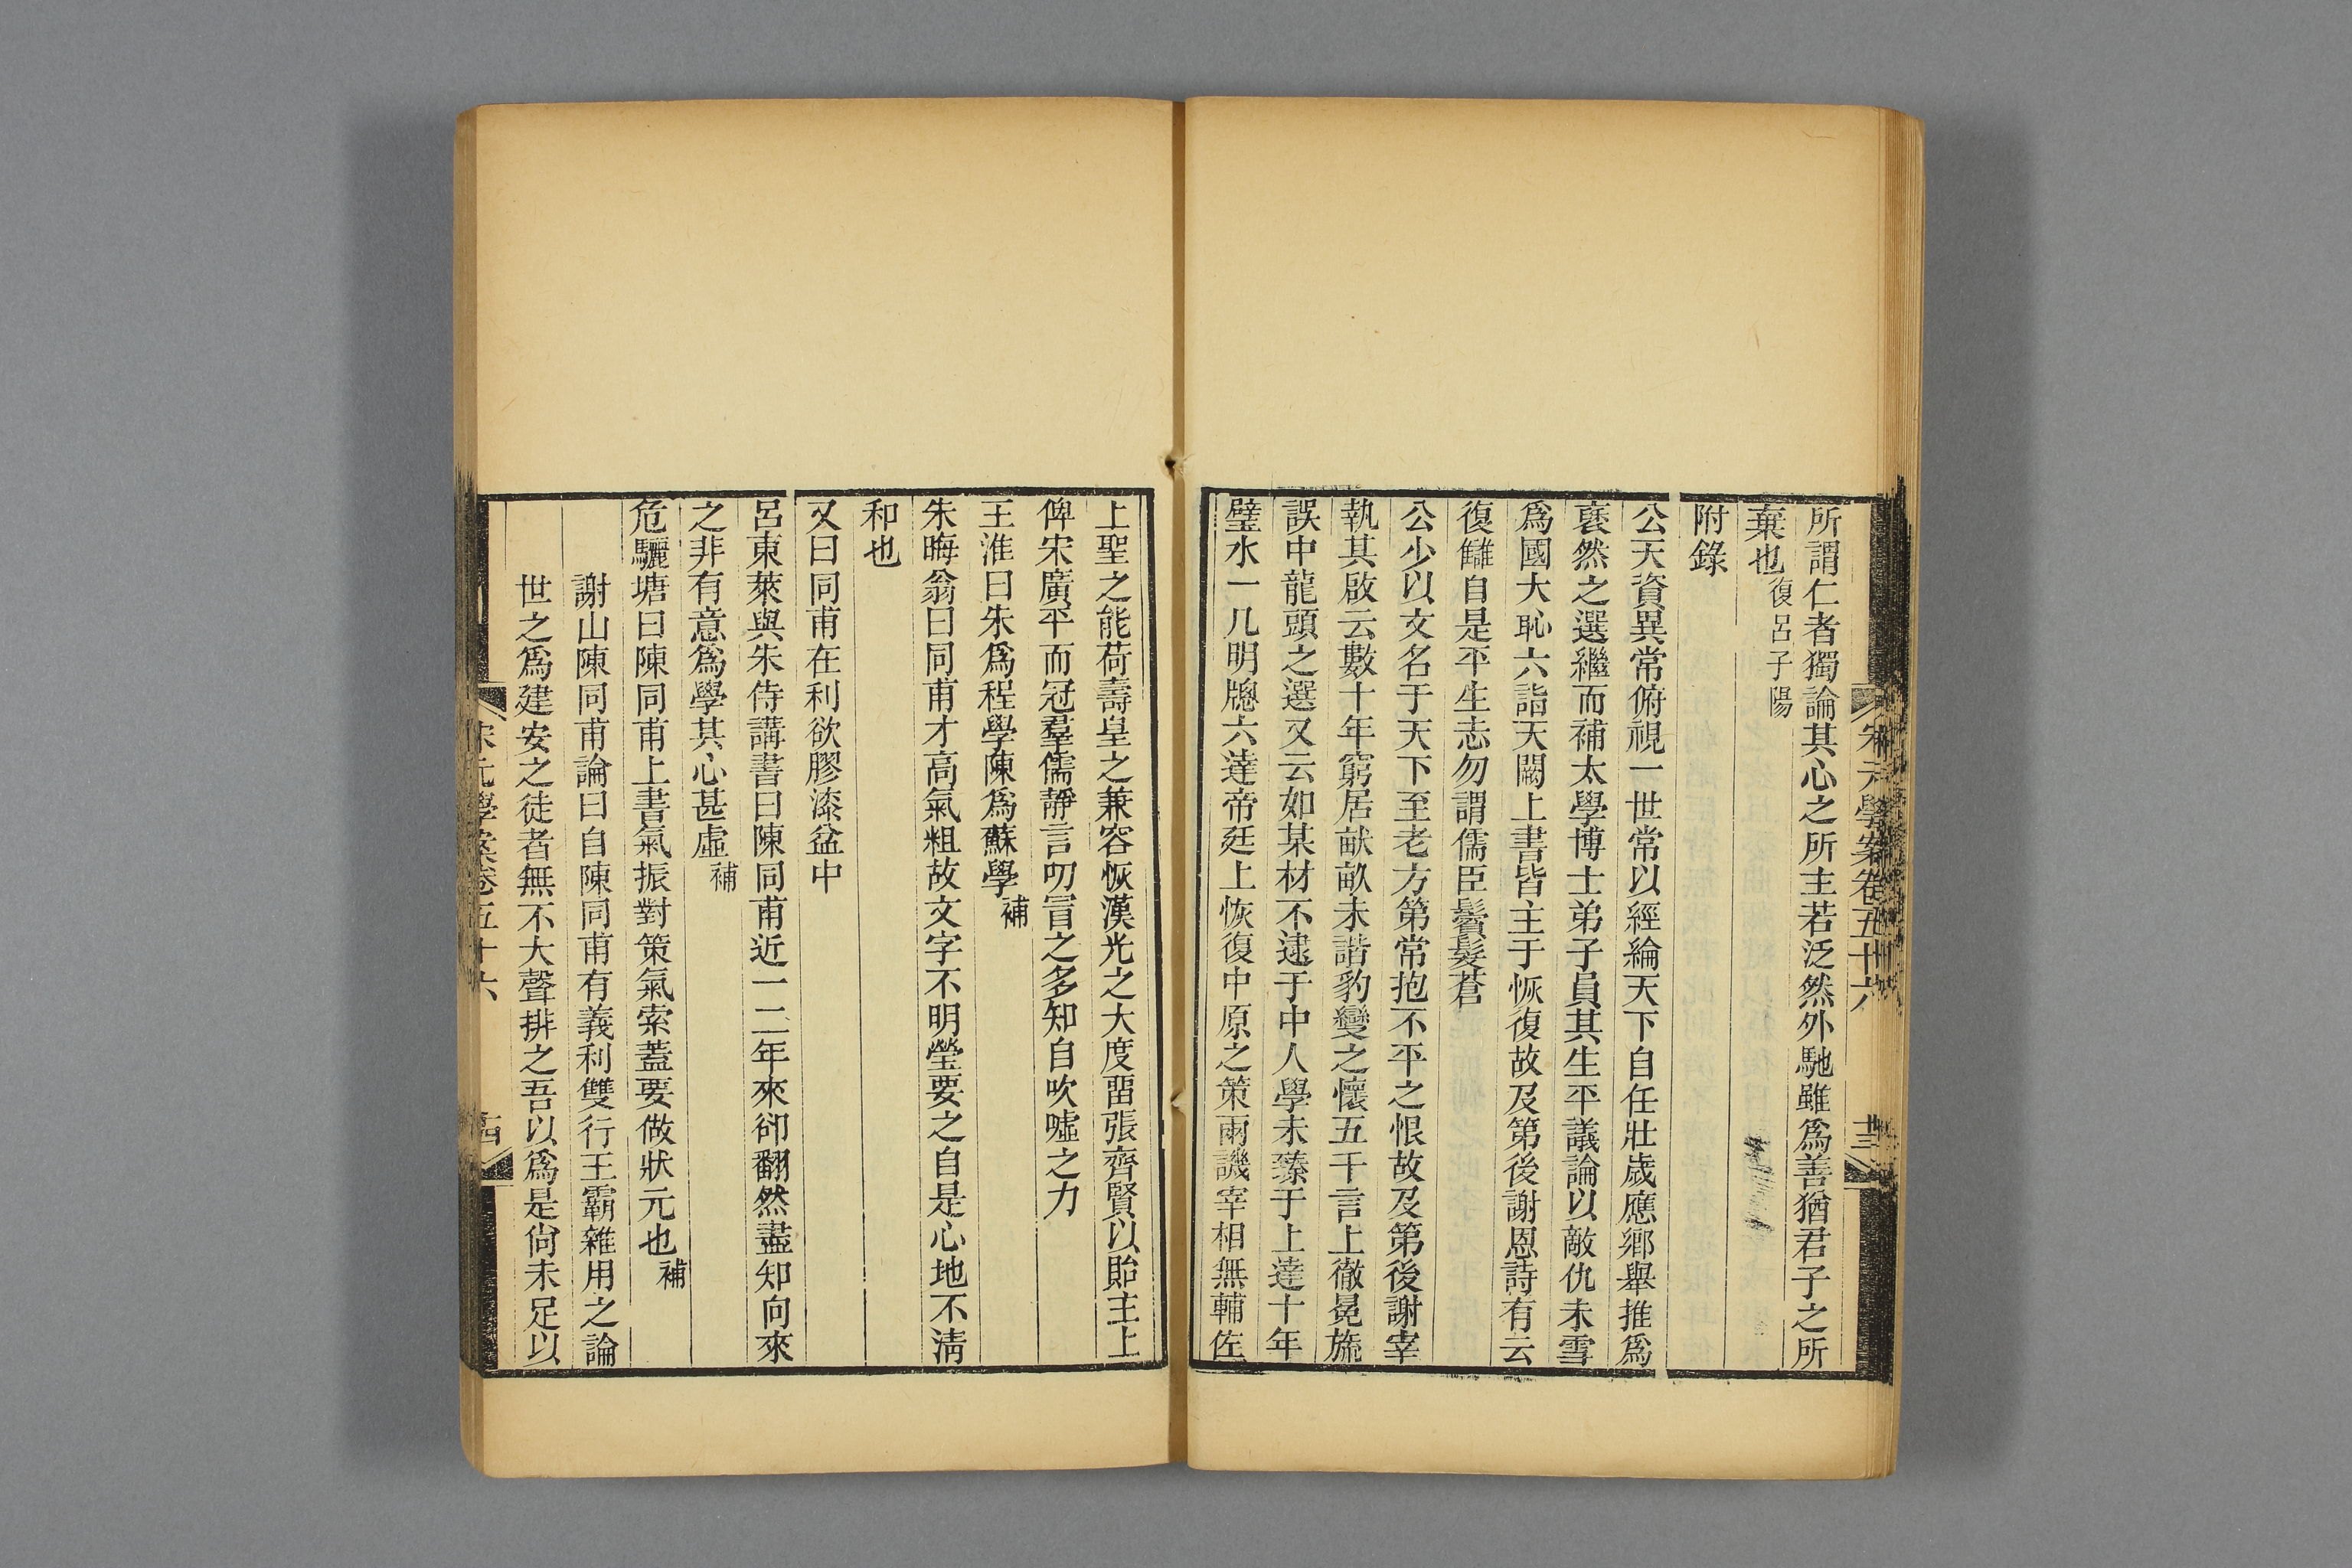 宋元學案卷五十六
十三
所謂仁者獨論其心之所主若泛然外馳雖爲善猶君子之所
棄也復呂子陽
附錄
公天資異常俯視一世常以經綸天下自任壯歲應鄉舉推爲
裦然之選繼而補太學博士弟子員其生平議論以敵仇未雪
爲國大恥六詣天闕上書皆主于恢復故及第後謝恩詩有云
復讎自是平生志勿謂儒臣鬢髮蒼
公少以文名于天下至老方第常抱不平之恨故及第後謝宰
執其啟云數十年窮居畎畝未諧豹變之懷五千言上徹冕旒
誤中龍頭之選又云如某材不逮于中人學未臻于上達十年
璧水一几明牕六達帝廷上恢復中原之策兩譏宰相無輔佐
上聖之能荷壽皇之兼容恢漢光之大度畱張齊賢以貽主上
俾宋廣平而冠羣儒靜言叨冒之多知自吹噓之力
王淮曰朱爲程學陳爲蘇學補
朱晦翁曰同甫才高氣粗故文字不明瑩要之自是心地不淸
和也
又曰同甫在利欲膠漆盆中
呂東萊與朱侍講書曰陳同甫近一二年來卻翻然盡知向來
之非有意爲學其心甚虛補
危驪塘曰陳同甫上書氣振對策氣索蓋要做狀元也補
謝山陳同甫論曰自陳同甫有義利雙行王霸雜用之論
世之爲建安之徒者無不大聲排之吾以爲是尙未足以
宋元學案卷五十六